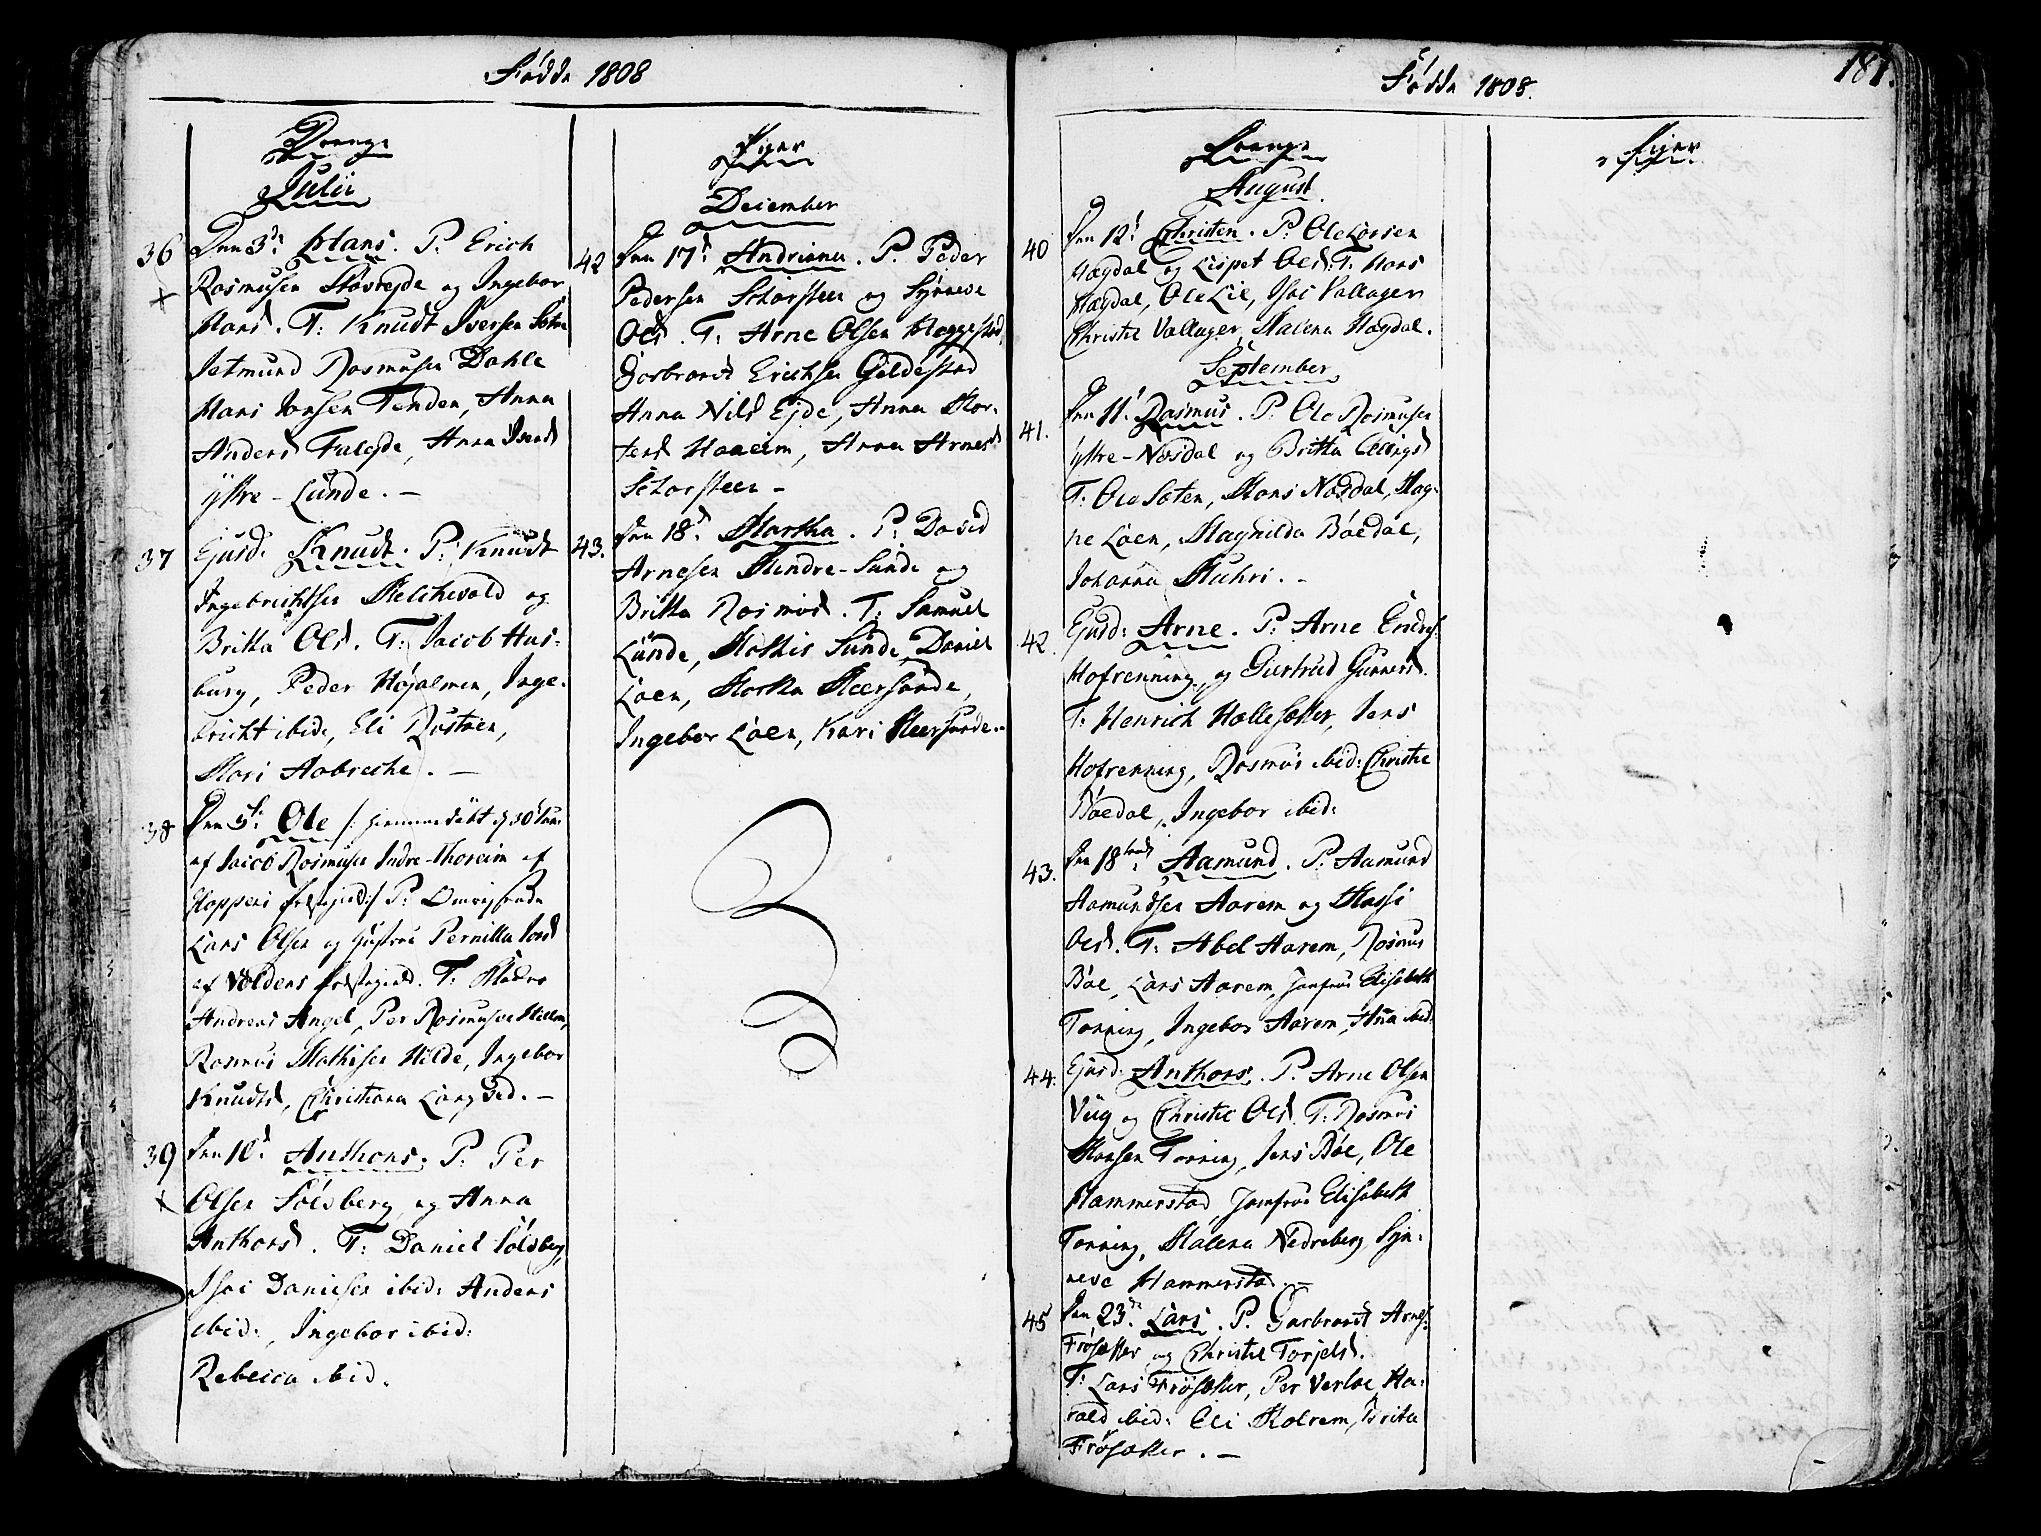 Fødde 1808
Drenge
Julii
36 Den 3de Hans. P: Erich
Rasmusen Skavejde og Ingebor
Hansd. T: Knudt Iversen
Jetmund Rasmusen Dahle
Hans Jonsen Tenden, Anna
Andersd Falejde, Anna Iversd
Yttre-Lunde. -
37 Ejusd. Knudt. P: Knudt
Ingebrichtsen Melchevold og
Britta Olsd. T: Jacob Hus-
burg, Peder Højalmen, Inge-
bricht ibid, Eli Rustøen,
Mari Aabreche. -
38 Den 5te Ole /: hiemmedöbt d 30
af Jacob Rasmusen Indre-Thoreim af
Hoppens Præstegield:/ P:
Lars Olsen og Hustrue Pernilla
af Voldens Præstegield. T:
Andreas Angel, Per Rasmusen
Rasmus Mathisen Hilde, Ingebor
Knudtsd, Christiana
39 Den 10de Anthons. P: Per
Olsen Sölvberg og Anna
Anthonsd. T: Daniel Sölvberg,
Isac Danielsen ibid: Anders
ibid:, Ingebor ibid:
Rebecca ibid.
Piger
December
42 Den 17de Andriana. P: Peder
Pedersen Scharsteen og Synneve
Olsd. T: Arne Olsen Meggestad,
Garbrandt Erichsen Gieldestad
Anna Nilsd Ejde, Anna Mor-
tensd Haaeim, Anna Arnesd
Scharsteen -
43. Den 18de Martha. P: David
Arnesen Mindre-Sunde og
Britta Rasmusd. T: Samuel
Lunde, Mathis Sunde, Daniel
Loen, Martha Meersunde,
Ingebor Loen, Kari Meersunde.-
Fødde 1808.
181.
Drenge
August.
40 Den 12te Christen. P: Ole Larsen
Hægdal og Lispet Olsd. T: Hans
Hægdal, Ole Lie, Isac Vallager
Christi Vallager, Malena Hægdal.
September
41. Den 11te Rasmus. P: Ole Rasmusen
Yttre-Nøsdal og Britta Ellingsd
T: Ole Sæten, Mons Nøsdal, Mag-
ne Loen, Magnilda Böedal,
Johanna Muhri. -
42. Ejusd: Arne. P: Arne
Hofrenning, og Giertrud Gunnersd.
T: Henrich Hallesætter, Jens
Hofrenning, Rasmus ibid: Christie
Böedal, Ingebor ibid:
43. Den 18tende Aamund. P: Aamund
Aamundsen Aarem og Massi
Olsd. T: Abel Aarem, Rasmus
Böe, Lars Aarem, Jomfrue Elisabeth
Tonning, Ingebor Aarem, Anna ibid:
44. Ejusd: Anthons. P. Arne Olsen
Viig og Christie Olsd. T: Rasmus
Monsen Tonning, Jens Böe, Ole
Hammerstad, Jomfrue Elisabeth
Tonning, Malena Nedreberg, Syn-
neve Hammerstad. -
45 Den 23de Lars. P. Garbrandt Arnes:
Frösætter og Christie Torjelsd.
T: Lars Frösætter, Per Verloe, Ha-
rald ibid: Eli Molrem, Brita
Frösætter. -
Piger